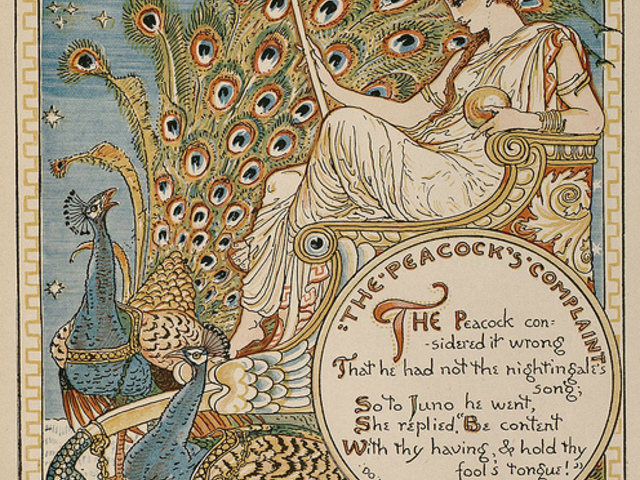 :THE·PEACOCK'S·COMPLAINT
THE Peacock con=
-sidered it wrong
That he had not the nightingale's
song;
So to Juno he went,
She replied, "Be content
With thy having, & hold thy
fool's tongue!"